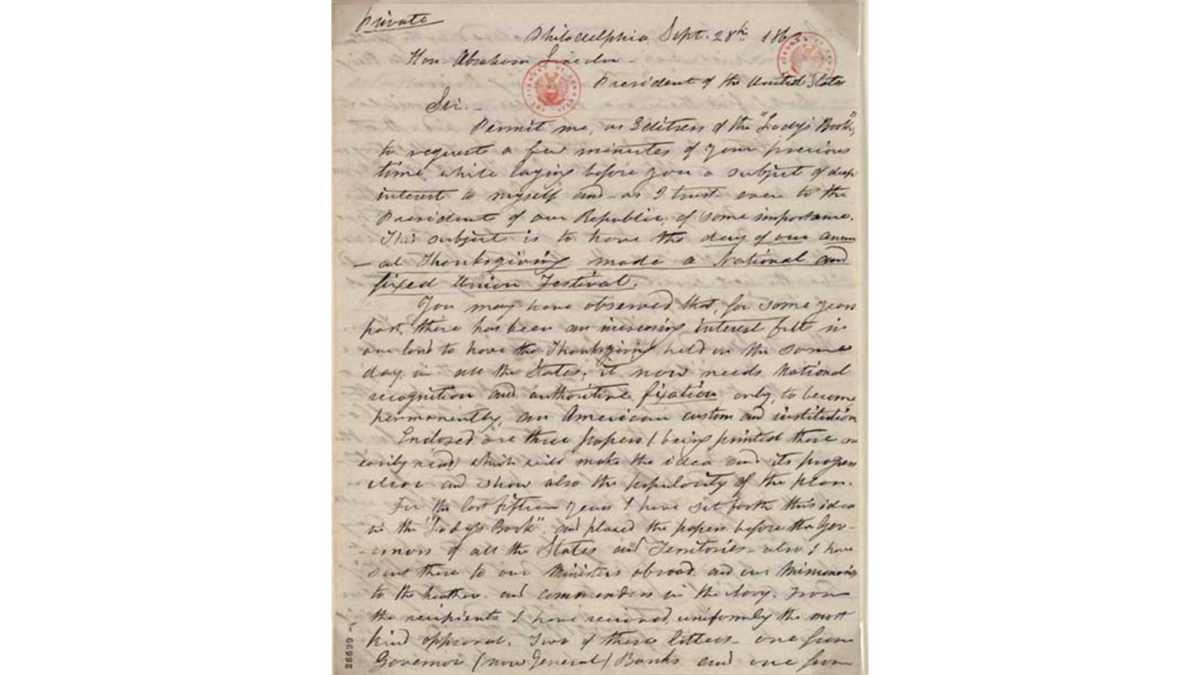 Private
Philadelphia, Sept. 28th 1863.
Hon. Abraham Lincoln -
President of the United States
Sir. -
Permit me, as Editress of the "Lady's Book",
to request a few minutes of your precious
time, while laying before you a subject of deep
interest to myself and - as I trust - even to the
President of our Republic, of some importance.
This subject is to have the day of our annu-
-al Thanksgiving made a National and
fixed Union Festival.
You may have observed that, for some years
past, there has been an increasing interest felt in
our land to have the Thanksgiving held on the same
day, in all the States; it now needs National
recognition and authoritive fixation, only, to become
permanently, an American custom and institution.
Enclosed are three papers (being printed these are
easily read) which will make the idea and its progress
clear and show also the popularity of the plan.
For the last fifteen years I have set forth this idea
in the "Lady's Book", and placed the papers before the Gov-
-ernors of all the States and Territories - also I have
sent these to our Ministers abroad, and our Missionaries
to the heathen - and commanders in the Navy. From
the recipients I have received, uniformly the most
kind approval. Two of these letters - one from
Governor (now General) Banks and one from
26699